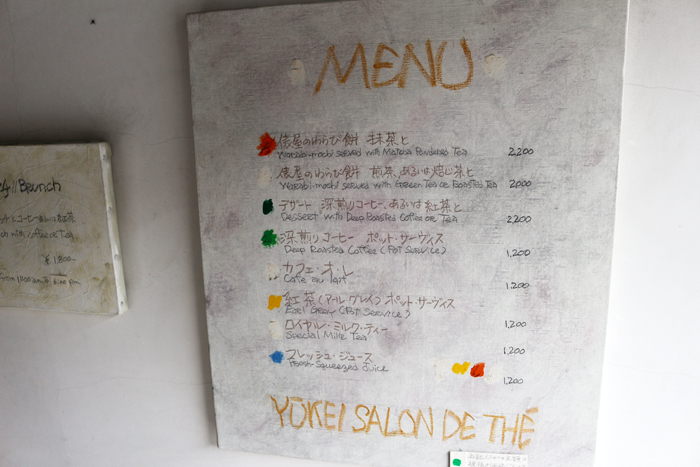 MENU
俵屋のわらび餅 抹茶と
Warabi-mochi served with Matcha Powdered Tea 2,200
俵屋のわらび餅 煎茶、あるいは焙じ茶と
Warabi-mochi served with Green Tea or Roasted Tea 2,000
デザート 深煎りコーヒー、あるいは紅茶と
Dessert with Deep Roasted Coffee or Tea 2,200
深煎りコーヒー ポット・サーヴィス
Deep Roasted Coffee (Pot Service) 1,200
カフェ・オ・レ
Cafe au lait 1,200
紅茶(アール グレイ) ポット・サーヴィス
Earl Grey (Pot Service)
ロイヤル・ミルク・ティー 1,200
Special Milk Tea
フレッシュ・ジュース 1,200
Fresh Squeezed Juice
1,200
YŪKEI SALON DE THÉ
Brunch
with Coffee or Tea
¥1,800